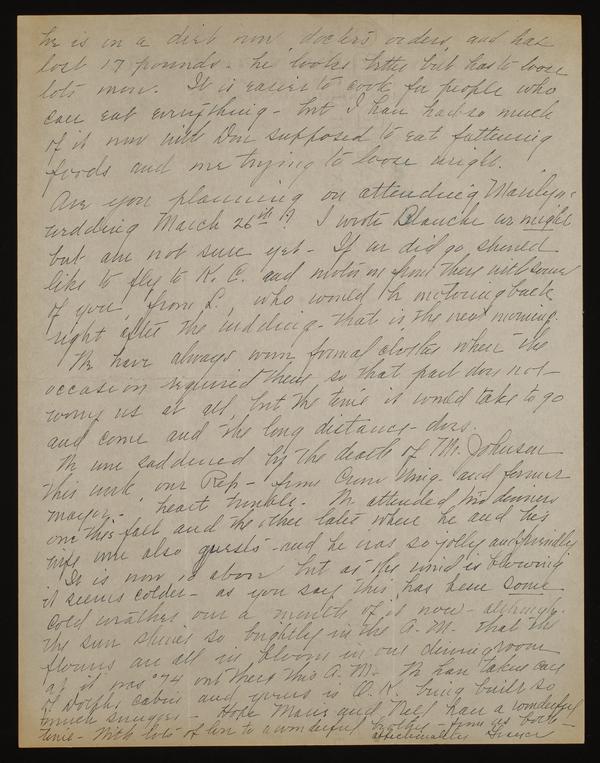 he is on a diet now, doctor's orders, and has
lost 17 pounds - he looks better but has to loose
lots more. It is easier to cook for people who
can eat everything - but I have had so much
of it now with Don supposed to eat fattening
foods and me trying to loose weight.
Are you planning on attending Marilyn's
wedding March 26th? I wrote Blanche we might
but are not sure yet - If we did go should
like to fly to K. C. and motor on from there with some
of you, from L, who would be motoring back
right after the wedding - that is the next morning.
We have always worn formal clothes when the
occasion required them so that part does not
worry us at all, but the time it would take to go
and come and the long distance - does.
We were saddened by the death of Mr. Johnson
this week our Rep - from and former
mayor - heart trouble. We attended two dinners
one this fall and the other later where he and his
wife were also guests - and he was so jolly and friendly
It is now 10 above but as the wind is blowing
it seems colder - as you say this has been some
cold weather over a month of it now - although
the sun shines so brightly in the A. M. that the
flowers are all in bloom in our dining room
as it was 74 out there this A. M. We have taken care
of Dolph's cabin and yours is O. K. being built so
much snugger - Hope Marie and Ned have a wonderful
time - With lots of love to a wonderful brother - from us both -
affectionately